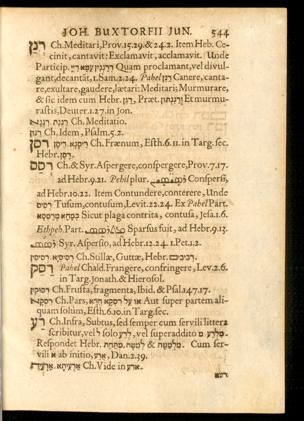 JOH. BUXTORFII JUN. 544
רנן Ch. Meditari, Prov. 15.29. & 24.2. Item Heb. Ce-
cinit, cantavit: Exclamavit, acclamavit. Unde
Particip. Quam proclamant, vel divul-
gant, decantāt, 1. Sam. 2.24. Pahel רנן Canere, canta-
re, exultare, gaudere, lætari: Meditari; Murmurare,
& sic idem cum Hebr. רגן, Præt. Et murmu-
rastis, Deuter. 1.27. in Jon.
Ch. Meditatio.
רנן Ch. Idem, Psalm. 5.2.
רסן Ch. Frænum, Esth. 6.11. in Targ. sec.
Hebr. רסן.
רסס Ch. & Syr. Aspergere, conspergere, Prov. 7.17.
ad Hebr. 9.21. Pehil plur. Conspersi,
ad Hebr. 10.22. Item Contundere, conterere, Unde
רסיס Tusum, contusum, Levit. 22.24. Ex Pahel Part.
Sicut plaga contrita, contusa, Jesa. 1.6.
Ethpeh. Part. Sparsus fuit, ad Hebr. 9.13.
Syr. Aspersio, ad Hebr. 12.24. 1. Pet. 1.2.
Ch. Stillæ, Guttæ, Hebr. רביבים.
רסק Pahel Chald. Frangere, confringere, Lev. 2.6.
in Targ. Jonath. & Hierosol.
Ch. Frusta, fragmenta, Ibid. & Psal. 147.17.
Ch. Pars, Aut super partem ali-
quam solùm, Esth. 6.10. in Targ. sec.
רע Ch. Infra, Subtus, sed semper cum servili littera
scribitur, vel ל solo לרע, vel superaddito מ מלרע.
Respondet Hebr. מתחת & למטה, מלמטה. Cum ser-
vili א ab initio, ארע, Dan. 2.39.
Ch. Vide in ארע